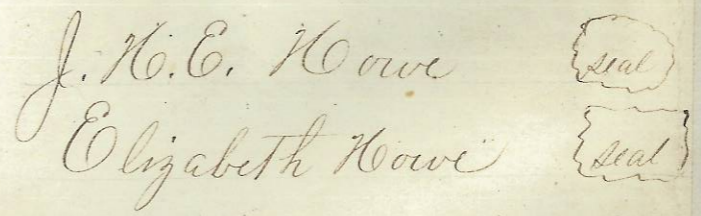 J. H. E. Howe seal
Elizabeth Howe seal